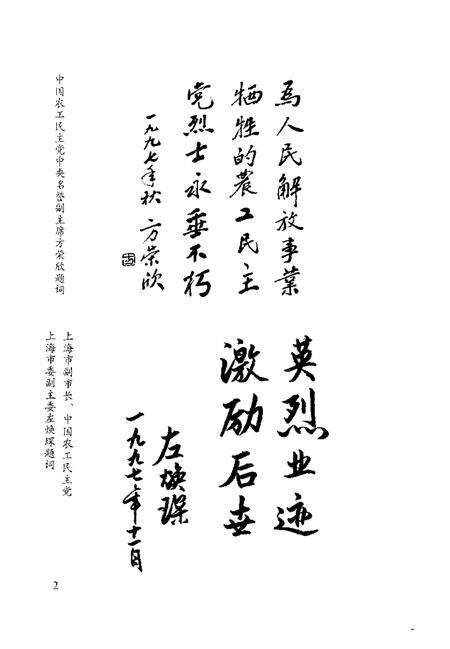 为人民解放事業
牺牲的農工民主
党烈士永垂不朽
一九九七年秋 方荣欣
中国农工民主党中央名誉副主席方荣欣题词
英烈业迹
激励后世
左焕琛
一九九七年十一月
上海市副市长、中国农工民主党
上海市委副主委左焕琛题词
2